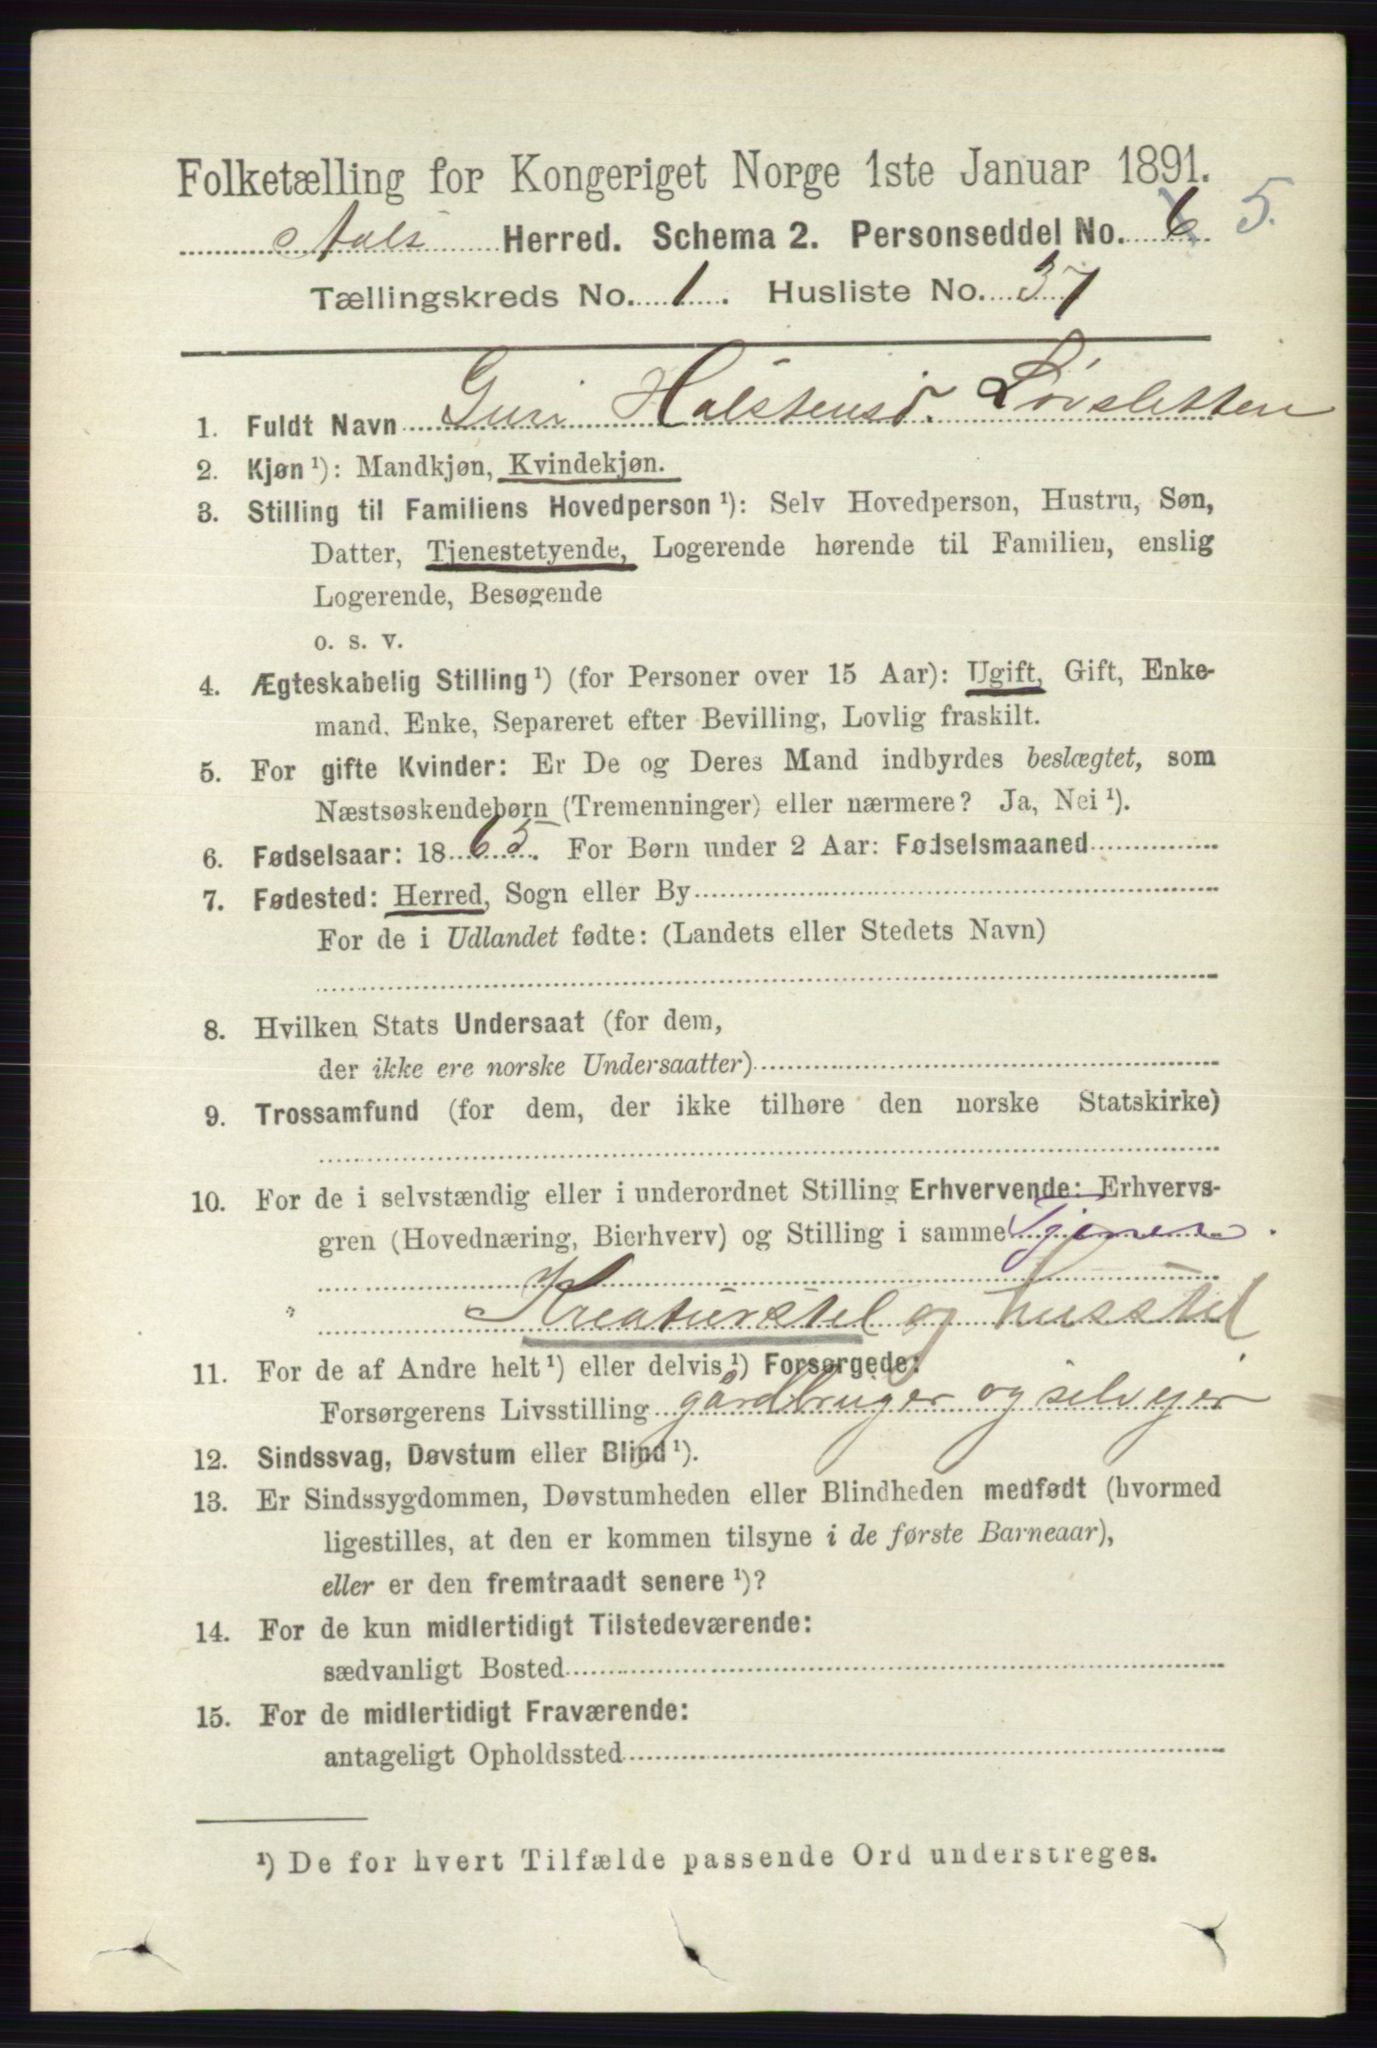 Folketælling for Kongeriget Norge 1ste Januar 1891.
Aals Herred. Schema 2. Personseddel No. 6 5.
Tællingskreds No. 1. Husliste No. 37
1. Fuldt Navn Guri Halstensd. Løvsletten
2. Kjøn ¹): Mandkjøn, Kvindekjøn.
3. Stilling til Familiens Hovedperson ¹): Selv Hovedperson, Hustru, Søn,
Datter, Tjenestetyende, Logerende hørende til Familien, enslig
Logerende, Besøgende
o. s. v.
4. Ægteskabelig Stilling ¹) (for Personer over 15 Aar): Ugift, Gift, Enke-
mand, Enke, Separeret efter Bevilling, Lovlig fraskilt.
5. For gifte Kvinder: Er De og Deres Mand indbyrdes beslægtet, som
Næstsøskendebørn (Tremenninger) eller nærmere? Ja, Nei ¹).
6. Fødselsaar: 1865. For Børn under 2 Aar: Fødselsmaaned
7. Fødested: Herred, Sogn eller By
For de i Udlandet fødte: (Landets eller Stedets Navn)
8. Hvilken Stats Undersaat (for dem,
der ikke ere norske Undersaatter)
9. Trossamfund (for dem, der ikke tilhøre den norske Statskirke)
10. For de i selvstændig eller i underordnet Stilling Erhvervende: Erhvervs-
gren (Hovednæring, Bierhverv) og Stilling i samme
Kreaturstel og husstel
11. For de af Andre helt ¹) eller delvis ¹) Forsørgede:
Forsørgerens Livsstilling gårdbruger og selvejer
12. Sindssvag, Døvstum eller Blind ¹).
13. Er Sindssygdommen, Døvstumheden eller Blindheden medfødt (hvormed
ligestilles, at den er kommen tilsyne i de første Barneaar),
eller er den fremtraadt senere ¹)?
14. For de kun midlertidigt Tilstedeværende:
sædvanligt Bosted
15. For de midlertidigt Fraværende:
antageligt Opholdssted
¹) De for hvert Tilfælde passende Ord understreges.